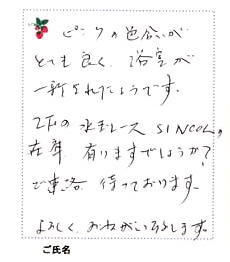 ピンクの色合いが
とても良く、浴室が
一新されたようです。
2Fの水玉レース SINCOL,
在庫 有りますでしょうか?
ご連絡 待っております。
よろしくおねがいいたします。
ご氏名